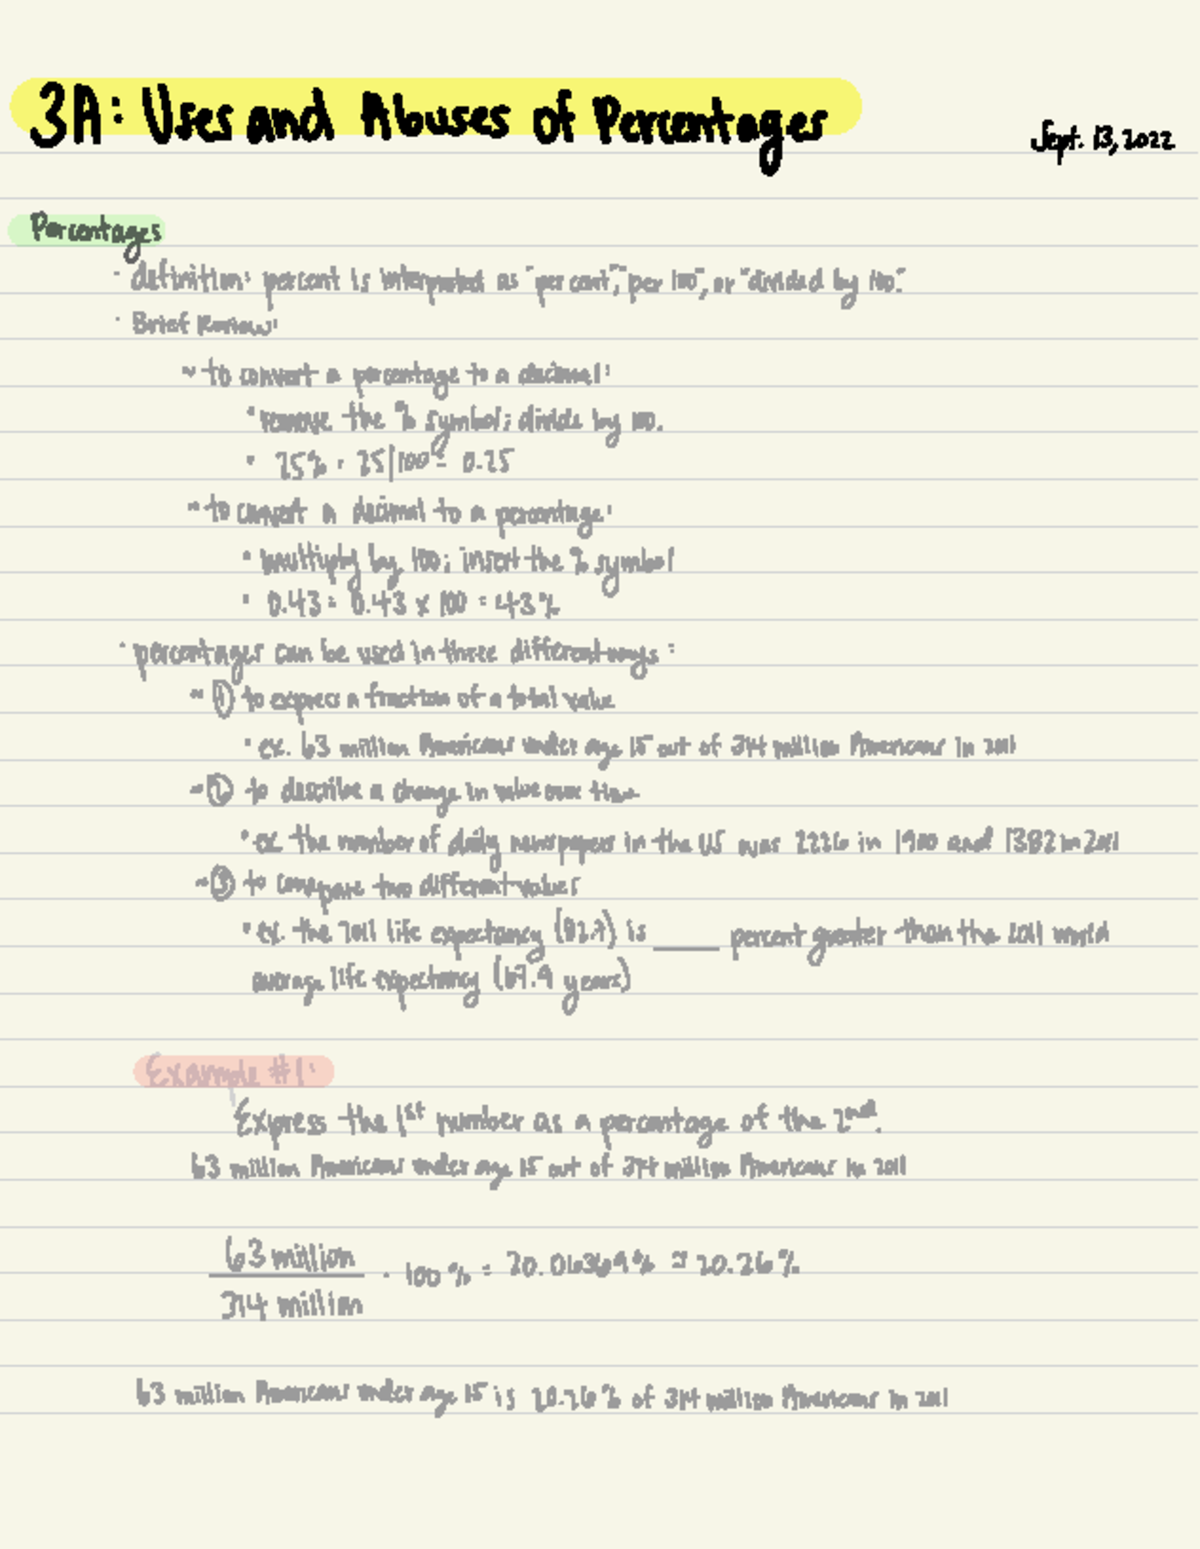 3A: Uses and Abuses of Percentages
Sept. 13, 2022
Percentages
· definition: percent is interpreted as "per cent," "per 100", or "divided by 100."
· Brief Review:
~ to convert a percentage to a decimal:
· remove the % symbol; divide by 100.
· 25% = 25/100 = 0.25
~ to convert a decimal to a percentage:
· multiply by 100; insert the % symbol
· 0.43 = 0.43 x 100 = 43%
· percentages can be used in three different ways:
~ ① to express a fraction of a total value
· ex. 63 million Americans under age 15 out of 314 million Americans in 2011
~ ② to describe a change in value over time
· ex. the number of daily newspapers in the US was 2226 in 1900 and 1382 in 2011
~ ③ to compare two different values
· ex. the 2011 life expectancy is ____ percent greater than the 2011 world
average life expectancy (69.9 years)
Example #1:
Express the 1st number as a percentage of the 2nd.
63 million Americans under age 15 out of 314 million Americans in 2011
63 million
314 million
· 100% = ≈ 20.26%
63 million Americans under age 15 is 20.26% of 314 million Americans in 2011